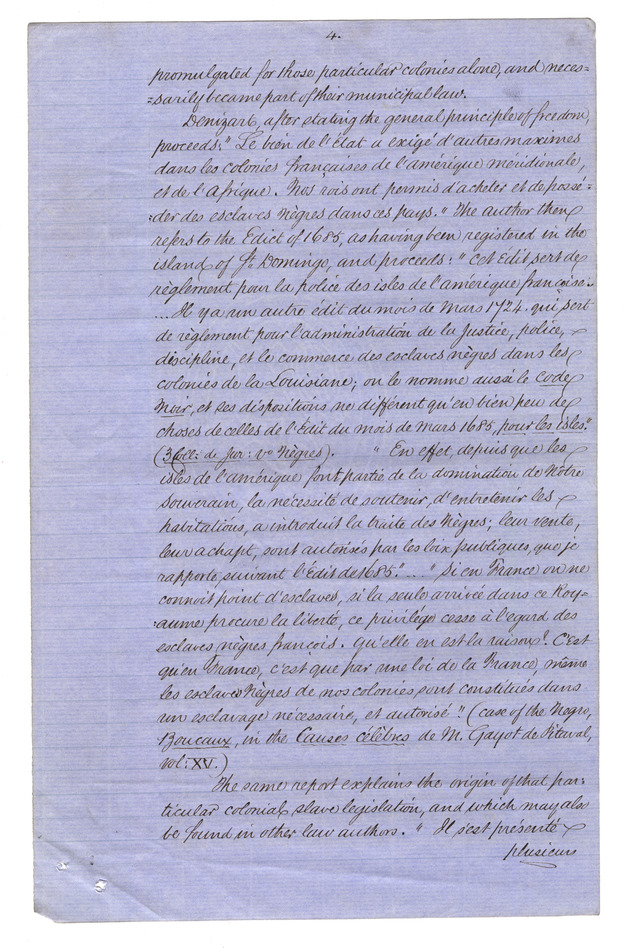 4.
promulgated for those particular colonies alone, and neces=
=sarily became part of their municipal law.
Denizart, after stating the general principle of freedom,
proceeds: " Le bien de l'Etat a exigé d'autres maximes
dans les colonies françaises de l'amérique méridionale,
et de l'afrique. Nos rois ont permis d'acheter et de possé=
=der des esclaves Nègres dans ces pays." The author then
refers to the Edict of 1685, as having been registered in the
island of St. Domingo, and proceeds: " cet Edit sert de
règlement pour la police des isles de l'amérique françoise.
.... Il y a un autre édit du mois de Mars 1724. qui sert
de règlement pour l'administration de la Justice, police,
discipline, et le commerce des esclaves nègres dans les
colonies de la Louisiane; on le nomme aussi le Code
Noir, et ses dispositions ne diffèrent qu'en bien peu de
choses de celles de l'Edit du mois de Mars 1685, pour les isles."
(3 Coll: de Jur: vo Nègres). " En effet, depuis que les
isles de l'amérique font partie de la domination de Nôtre
Souverain, la nécessité de soutenir, d'entretenir les
habitations, a introduit la traite des Nègres; leur vente,
leur achapt, sont autorisés par les loix publiques, que je
rapporte, suivant l'Edit de 1685." .... " Si en France on ne
connoit point d'esclaves, si la seule arrivée dans ce Roy=
=aume procure la liberté, ce privilége cesse à l'egard des
esclaves nègres françois. Qu'elle en est la raison? C'est
qu'en France, c'est que par une loi de la France, même
les esclaves Nègres de nos colonies, sont constitués dans
un esclavage nécessaire, et autorisé." (case of the Negro,
Boucaux, in the Causes célèbres de M. Gayot de Pitaval,
vol: XV.)
The same report explains the origin of that par=
ticular colonial slave legislation, and which may also
be found in other law authors. " Il s'est présenté
plusieurs